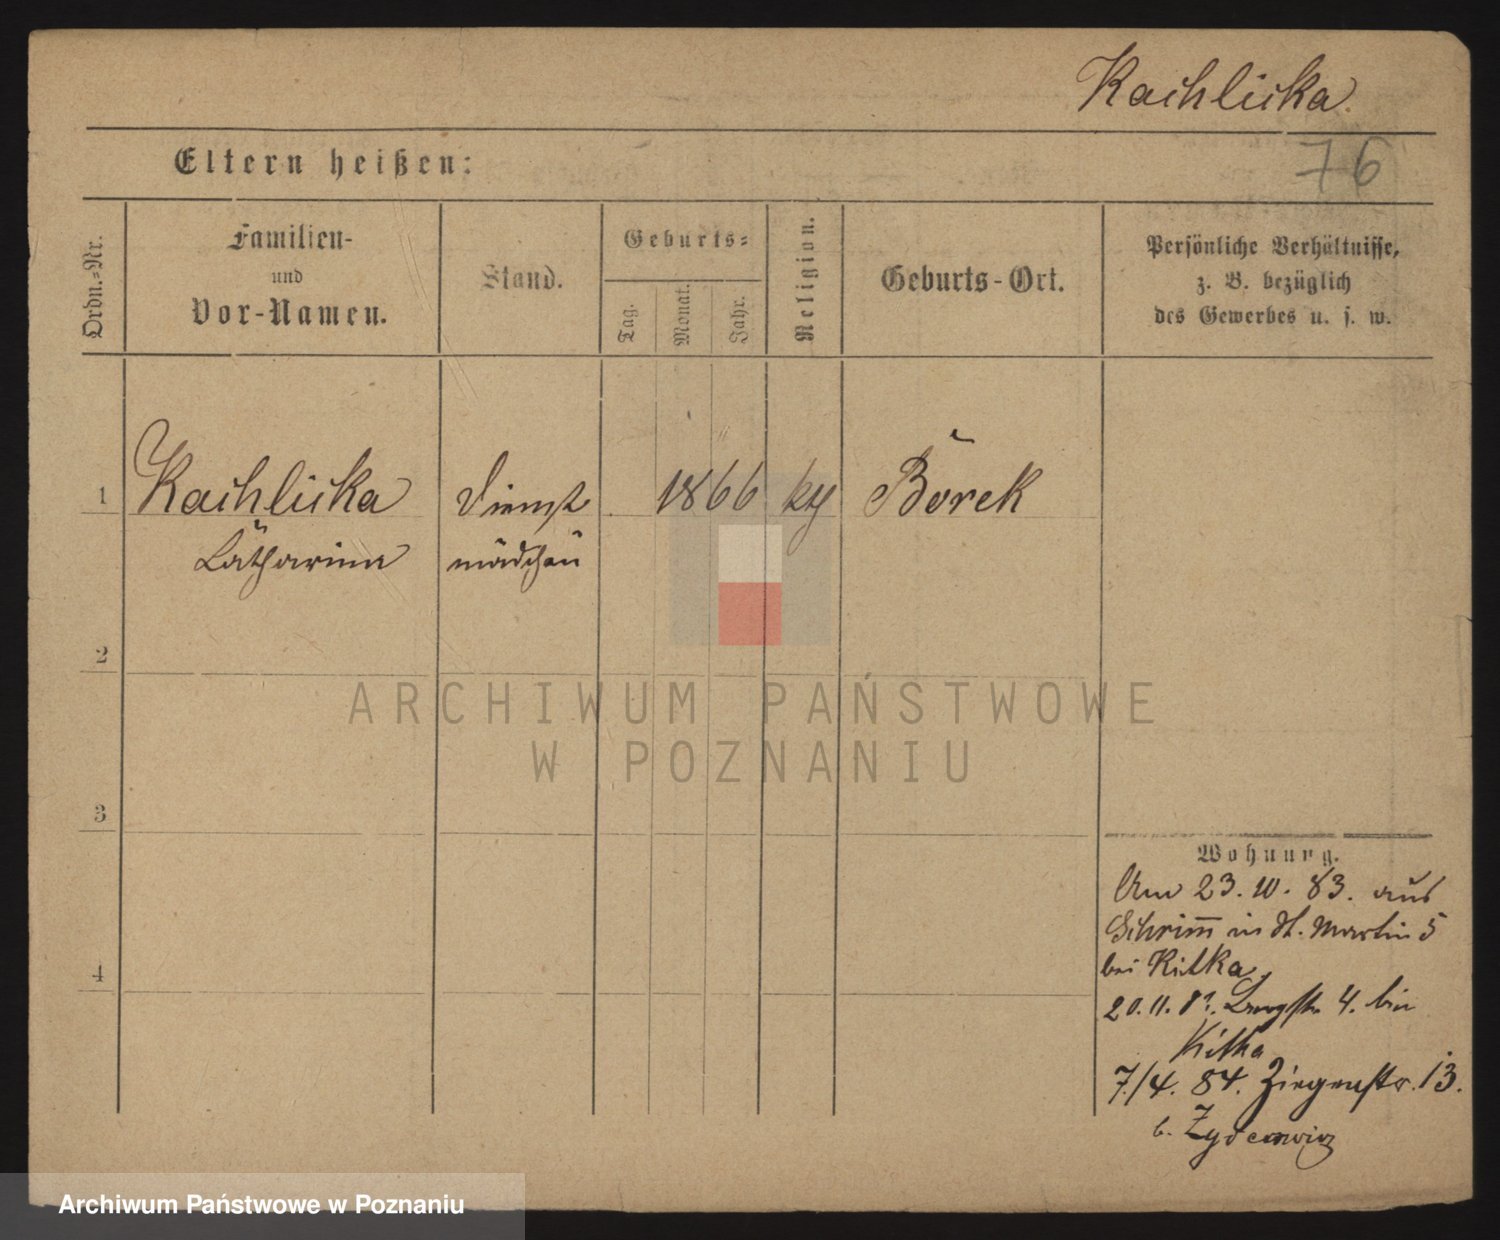 Kachlicka
76
Eltern heißen:
Ordn.-Nr.
Familien-
und
Vor-Namen.
Stand.
Geburts-
Tag.
Monat.
Jahr.
Religion.
Geburts-Ort.
Persönliche Verhältnisse,
z. B. bezüglich
des Gewerbes u. s. w.
1
Kachlicka
Catharina
Dienst
mädchen
1866
Borek
2
3
4
ARCHIWUM PAŃSTWOWE
W POZNANIU
Wohnung.
Am 23. 10. 83. aus
Schrim̅ in St. Martin 5
bei Kitka
20. 11. 4. bei
Kitka
7./4. 84. Ziegenstr. 13.
b.
Archiwum Państwowe w Poznaniu